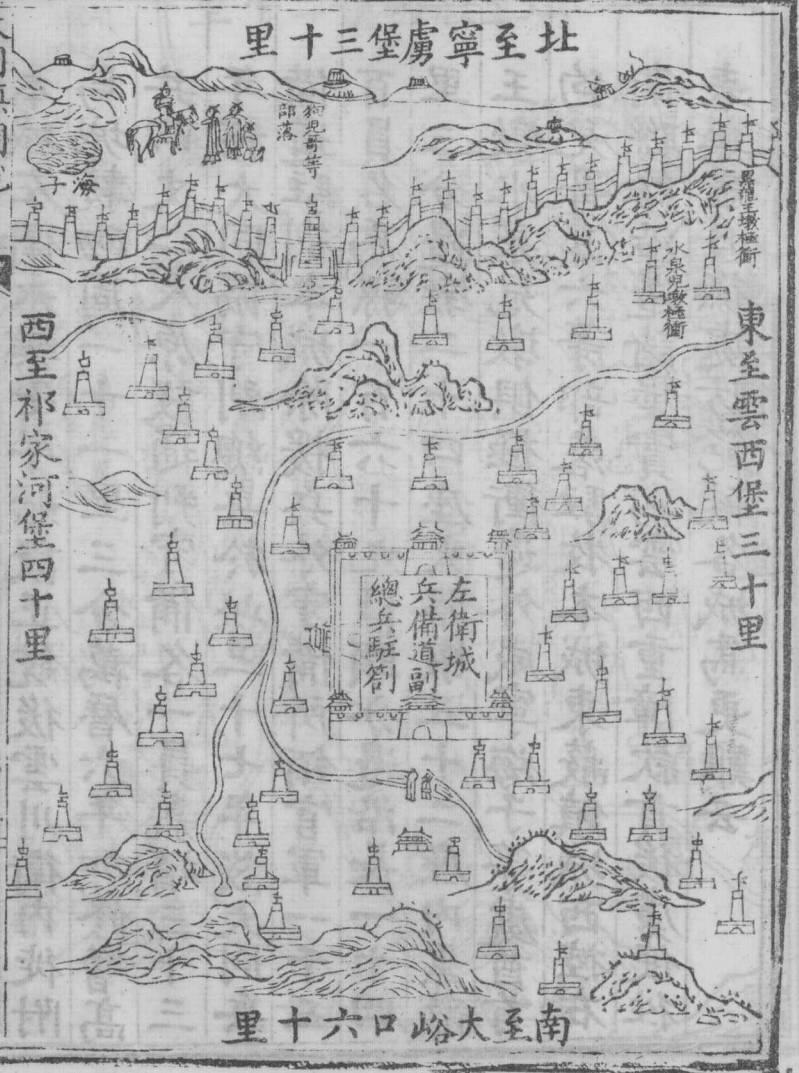 北至寧虜堡三十里
狗兒哥等
部落
海子
水泉兒墩極衝
東至雲西堡三十里
西至祁家河堡四十里
左衛城
兵備道副
總兵駐劄
南至大峪口六十里